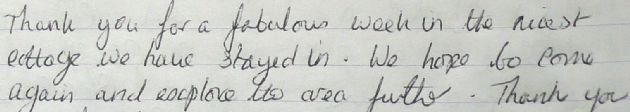 Thank you for a fabulous week in the nicest
cottage we have stayed in. We hope to come
again and explore the area further. Thank you